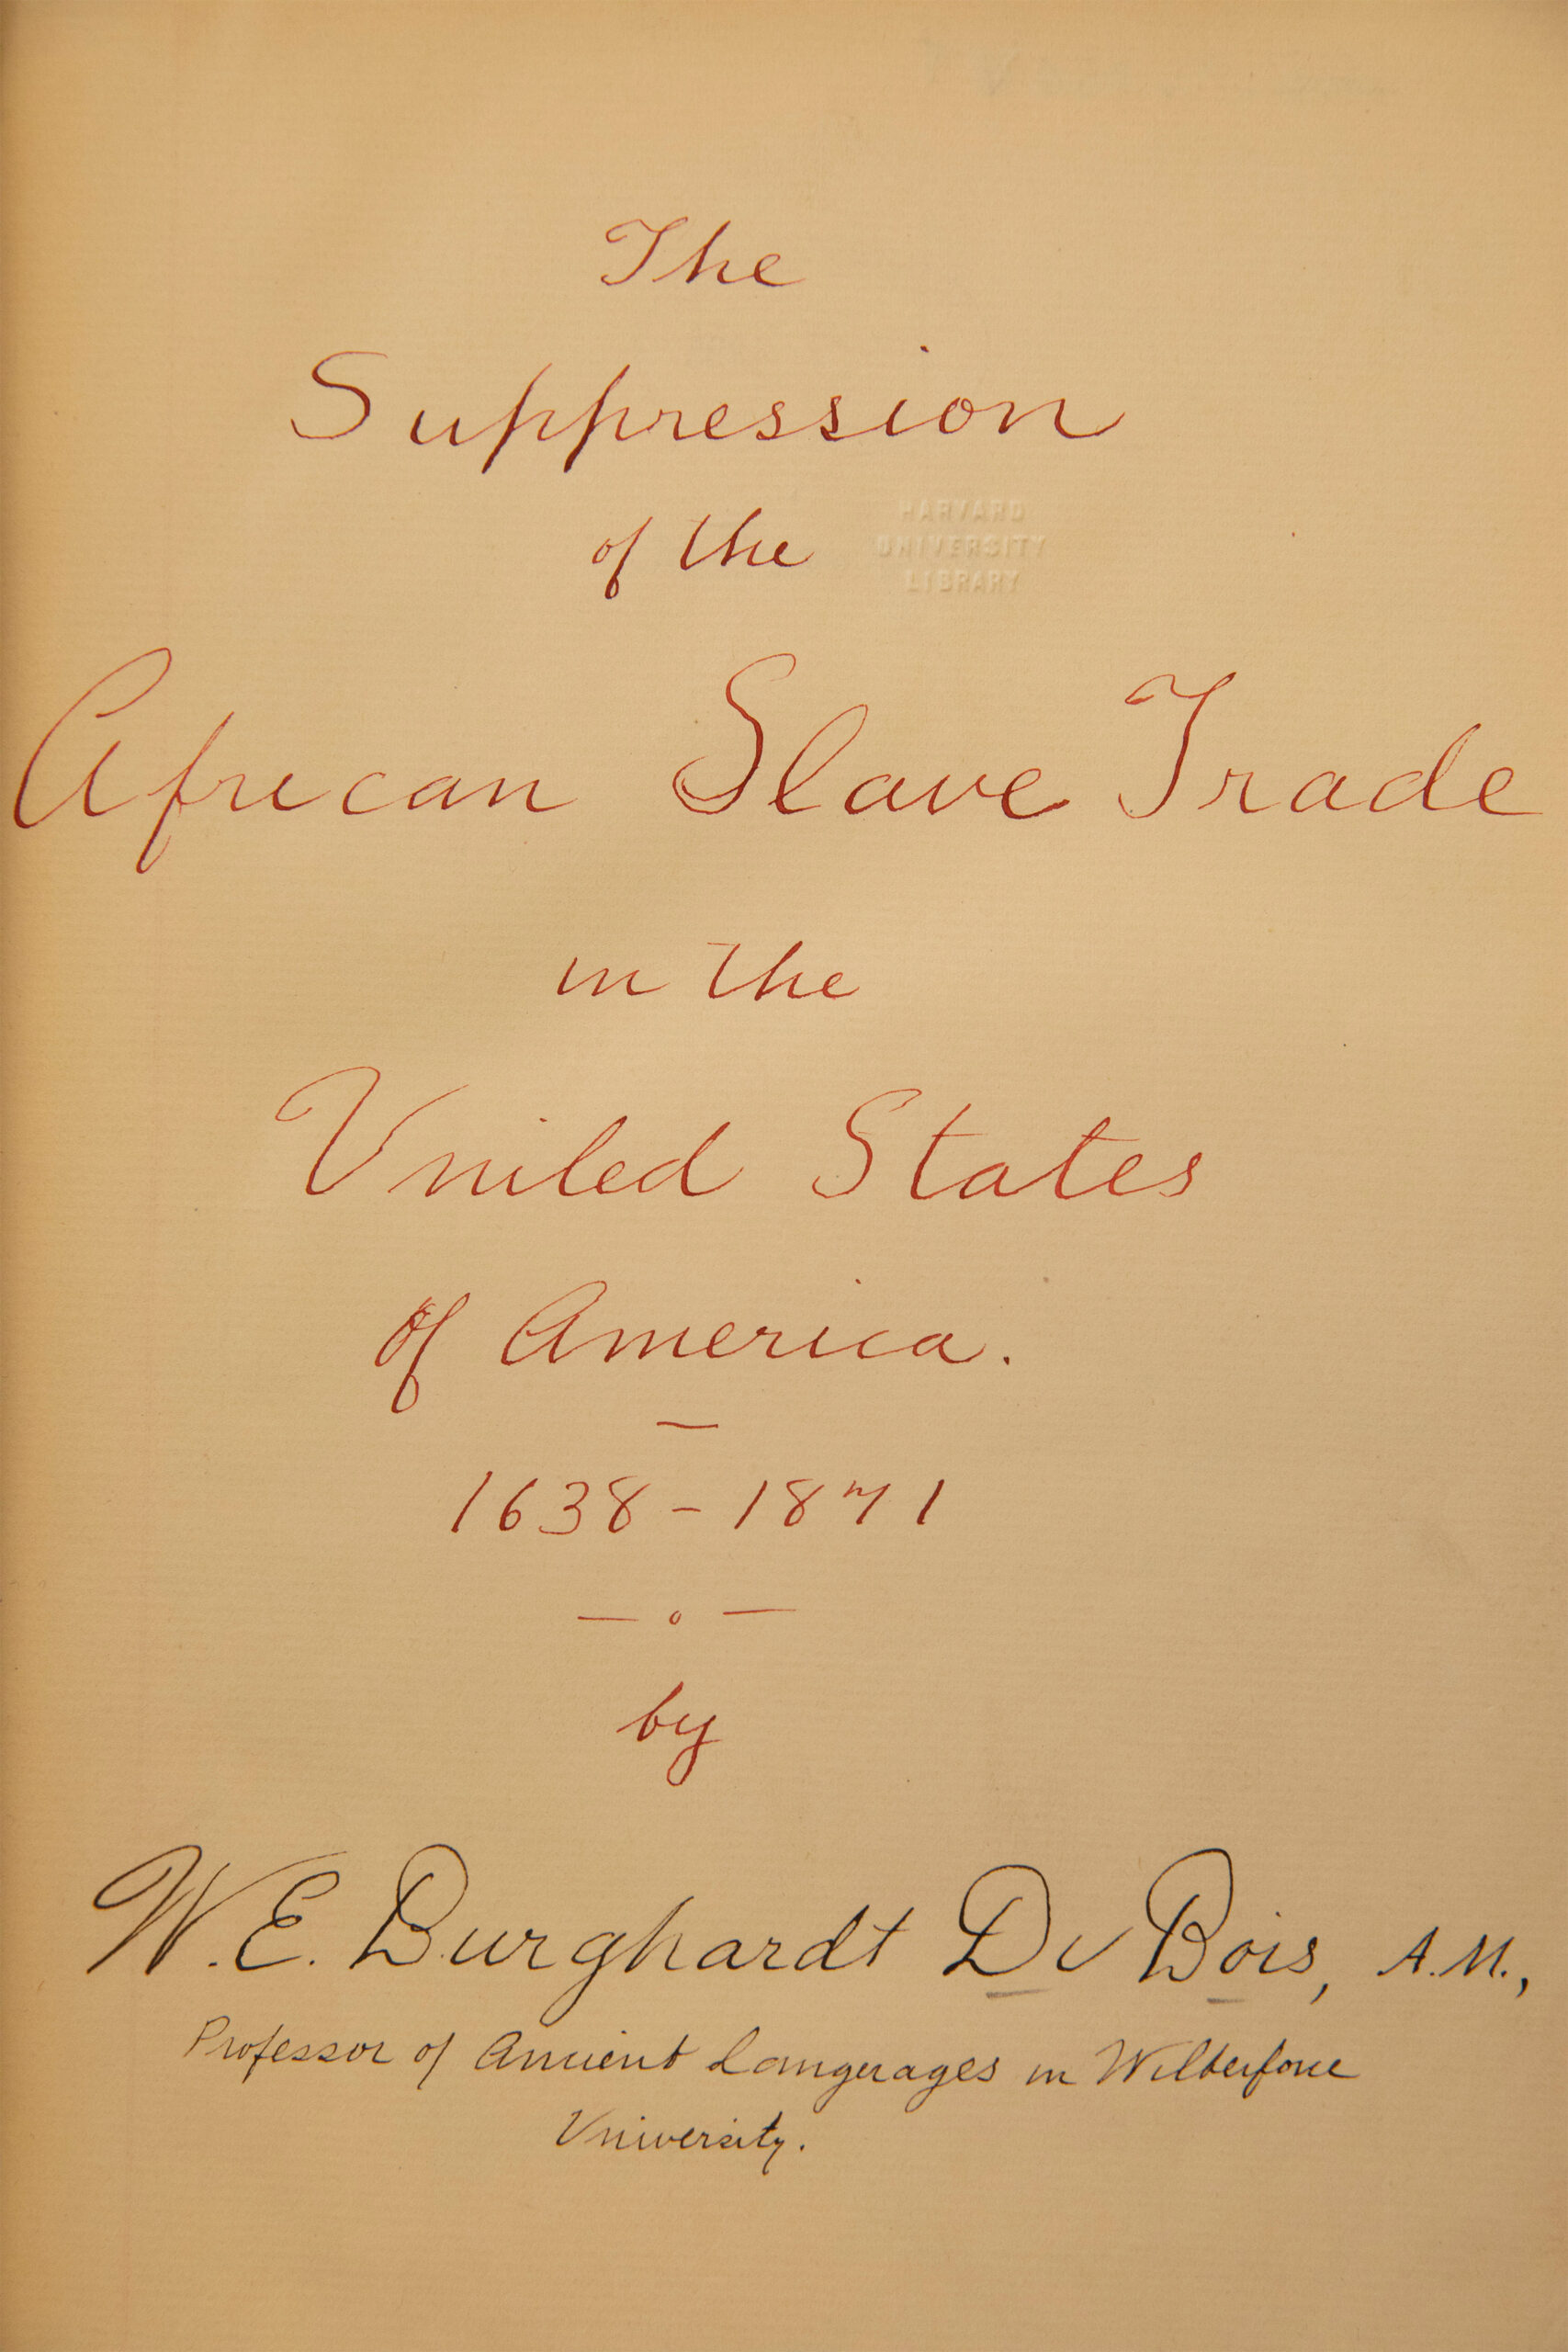 The
Suppression
of the
HARVARD
UNIVERSITY
LIBRARY
African Slave Trade
in the
United States
of America.
—
1638 – 1871
— o —
by
W. E. Burghardt Du Bois, A.M.,
Professor of Ancient Languages in Wilberforce
University.